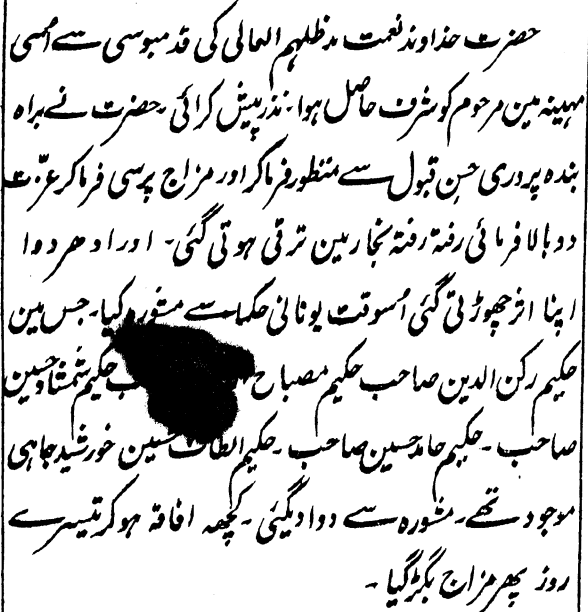 حضرت خداوند نعمت مدظلہم العالی کی قدمبوسی سے اسی
مہینہ مین مرحوم کو شرف حاصل ہوا۔ نذر پیش کرائی۔ حضرت نے براہ
بندہ پروری حسن قبول سے منظور فرماکر اور مزاج پرسی فرماکر عزّت
دوبالا فرمائی رفتہ رفتہ بخار مین ترقی ہوتی گئی۔ اور ادھر دوا
اپنا اثر چھوڑتی گئی اُسوقت یونانی حکما سے مشورہ کیا۔ جس مین
حکیم رکن الدین صاحب حکیم مصباح حکیم شمشاد حسین
صاحب۔ حکیم حامد حسین صاحب۔ حکیم الطاف حسین خورشید جاہی
موجود تھے۔ مشورہ سے دوا دیگئی۔ کچھہ افاقہ ہوکر تیسرے
روز پھر مزاج بگڑ گیا۔